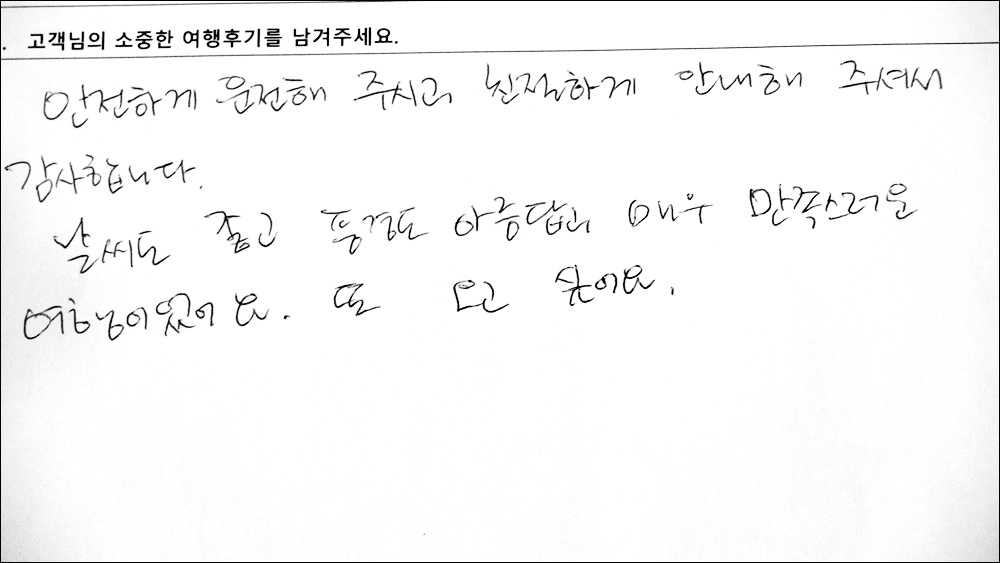 . 고객님의 소중한 여행후기를 남겨주세요.
안전하게 운전해 주시고, 친절하게 안내해 주셔서
감사합니다.
날씨도 좋고 풍경도 아름답고 매우 만족스러운
여행이었어요. 또 오고 싶어요.